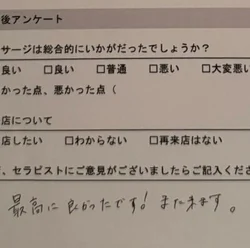 後アンケート
サージは総合的にいかがだったでしょうか?
良い □良い □普通 □悪い □大変悪い
かった点、悪かった点（
店について
店したい □わからない □再来店はない
、セラピストにご意見がございましたらご記入くださ
最高に良かったです! また来ます。